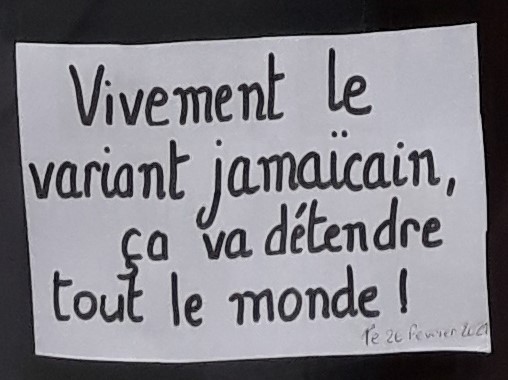 Vivement le
variant jamaïcain,
ça va détendre
tout le monde !
le 26 février 2021